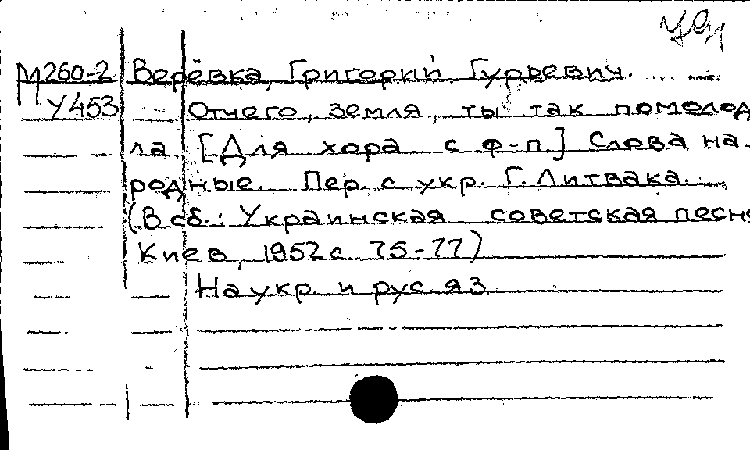 М260-2 Верёвка, Григорий Гурьевич.
У453 Отчего, земля, ты так помолод
ла. [Для хора с ф-п.] Слова на-
родные. Пер. с укр. Г. Литвака.
(В сб.: Украинская советская песня
Киев, 1952 с. 75-77)
На укр. и рус. яз.